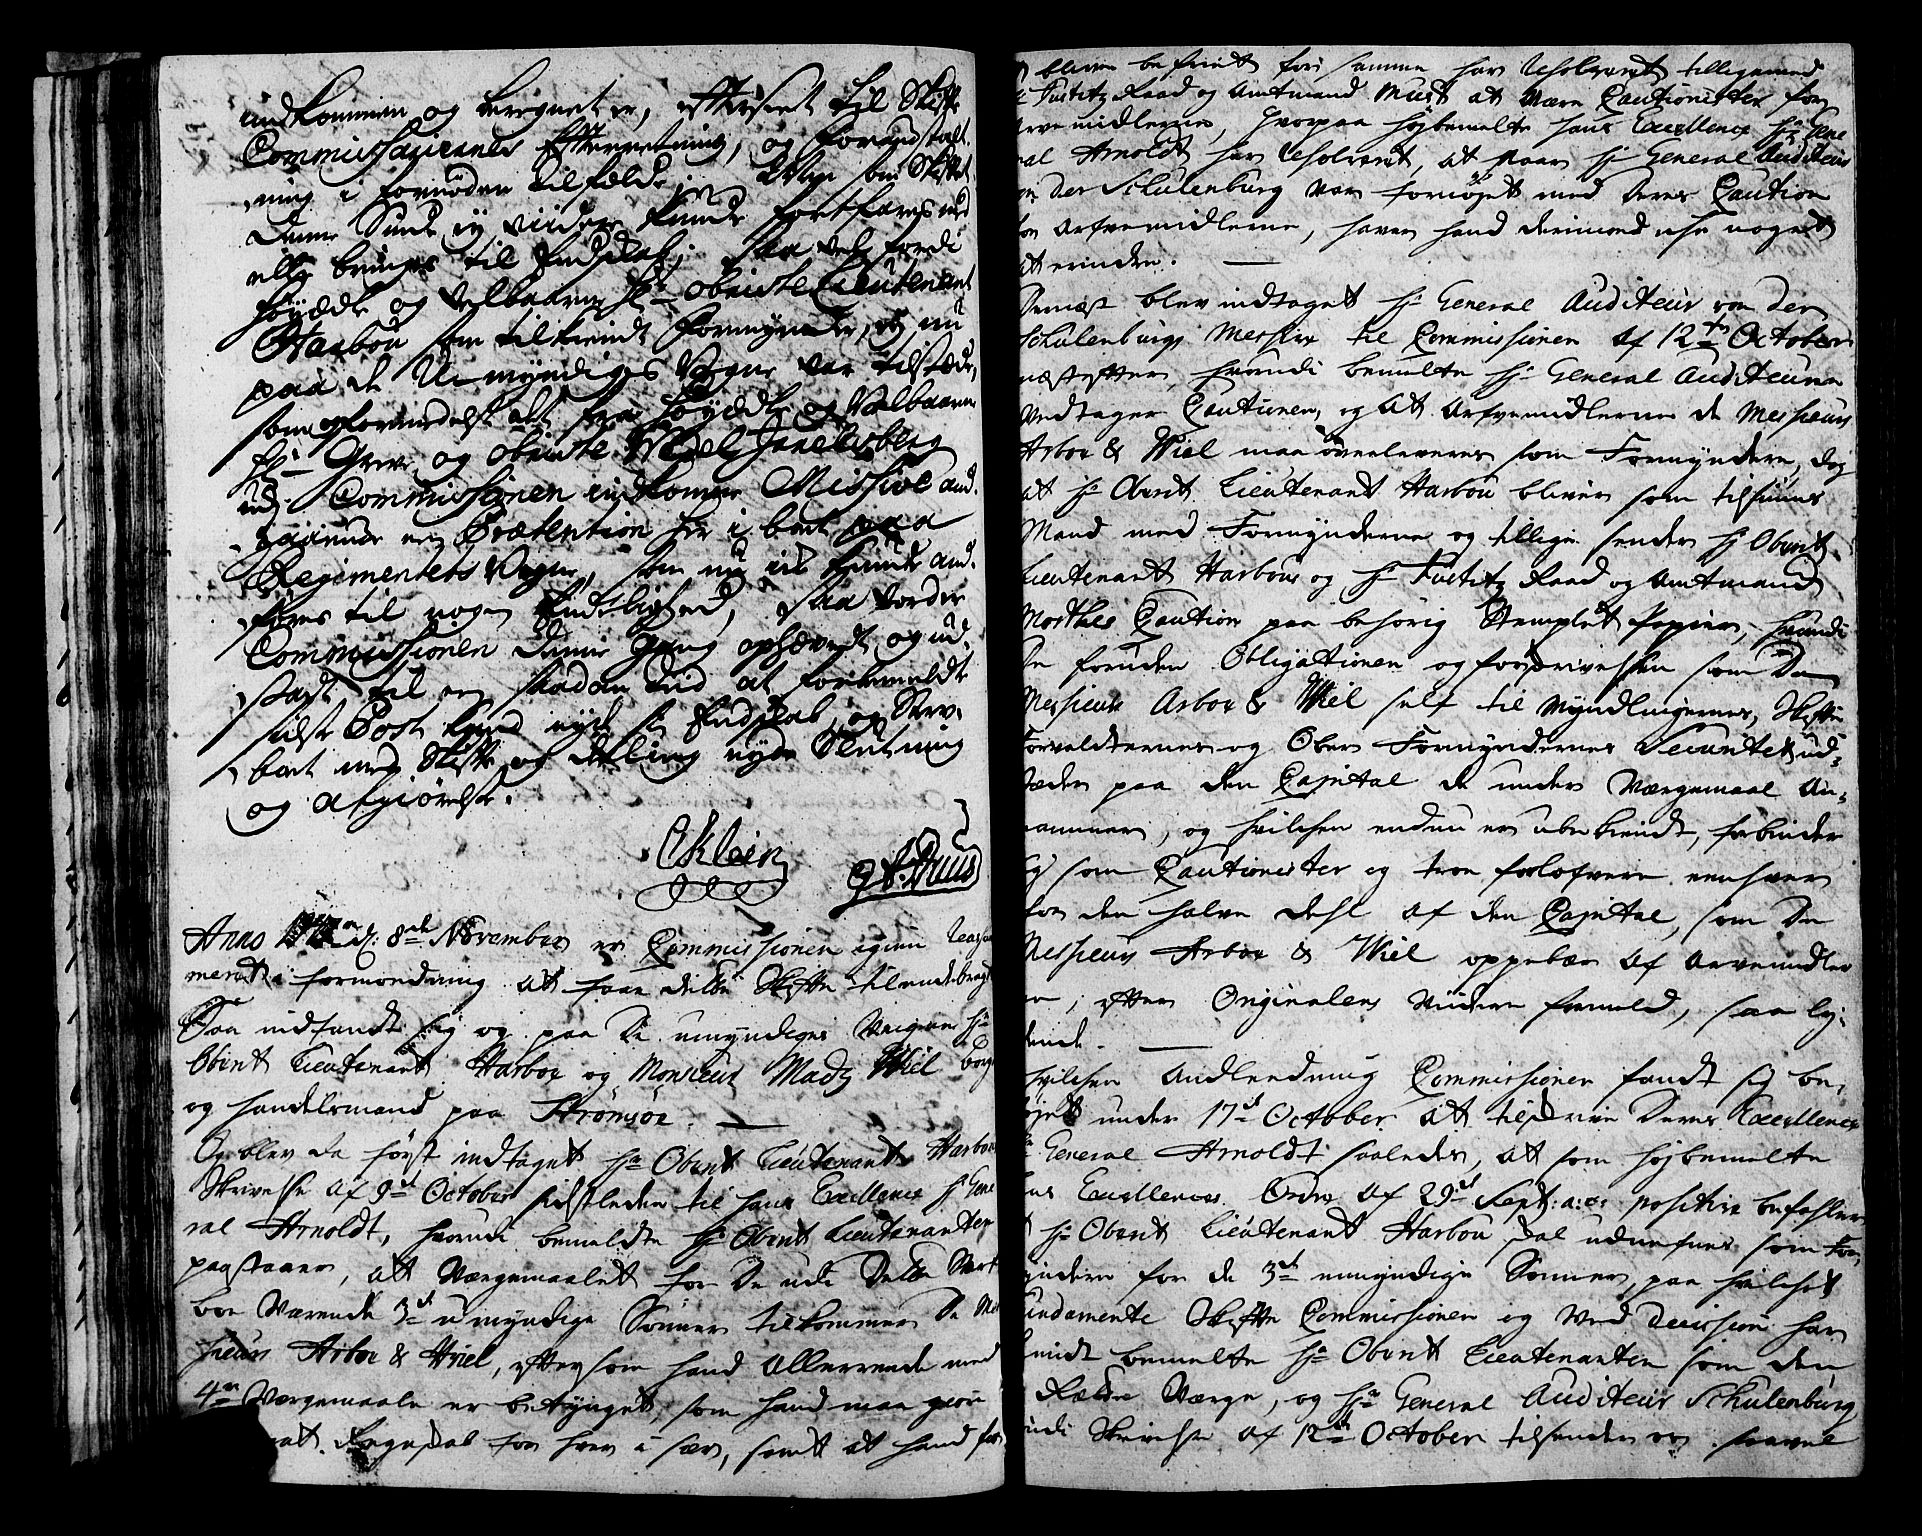 indkommen og beregnet er, efterseet til Skifte
Commissariernes Efterretning, og foranstalt-
ning i fornøden tilfælde; Men som Skiftet
denne Sinde ey viidere kunde fortfares med
elle bringes til Endskab; saa vel fordi
Høyædle og Velbaarne Hr Obriste Lieutenant
Harbou som tilkiendt Formynder, ey nu
paa de Umyndiges Vegne var tilstæde,
som og formedelst alt fra Høyædle og Velbaarne
Hr Greve og Obriste
ud Commissionen indkomne Missive and-
gaaende en Prætention her i boet paa
Regimentets Vegne, som nu ei kunde and-
føres til nogen Endelighed, saa vorder
Commissionen denne gang ophævet og ud-
sadt til en saadan tid at forbemeldte
sidste Post kand nyde sin Endskab, og Sterv-
boet med Skifte og deeling nyde Slutning
og Afgiørelse.
CKlein
Anno d: 8de November er Commissionen igien
i formodning at faae dette Skifte tilendebragt
Saa indfandt sig og paa de umyndiges Veigne Hr
Obrist Lieutenant Harboe og Monsieur Madz Wiel borger
og handelsmand paa Strømsøe.
Og blev da først indtaget Hr Obrist Lieutenant Harbous
Skrivelse af 9de October sidstleden til hans Excellence Hr Gene
ral Arnoldt, hvorudi bemeldte Hr Obrist Lieutenanten
paastaaer, at Værgemaalet for de udi dette Sterf
boe Værende 3de umyndige Sønner tilkommer de Mes
sieurs Arboe & Wiel, eftersom hand allerreede med
4re Værgemaale er betynget, som hand maa giøre
Regnskab for hver i sær, samt at hand for
blive befriet for samme har Resolveret tilligemed
Justitz Raad og Amtmand at være Cautionister for
Arvemidlerne, hvorpaa høybemelte hans Excellence Hr Gene
ral Arnoldt har Resolveret, at naar Hr General Auditeur
von Der Schulenburg var fornøyet med deres Caution
for Arfvemidlerne, haver hand derimod icke noget
at erindre.
Dernæst blev indtaget Hr General Auditeur von Der
Schulenburgs Messive til Commissionen af 12te October
næstefter, hvorudi bemelte Hr General Auditeuren
Vedtager Cautionen, og at Arfvemidlerne de Messieurs
Arboe & Wiel maa overleveres som Formyndere, dog
at Hr Obrist Lieutenant Harbou bliver som tilsiuns
Mand med Formynderne og tillige sender Hr Obrist
Lieutenant Harbous og Hr Justitz Raad og Amtmand
Caution paa behørig Stemplet Papiir, hvorudi
de foruden Obligationen og forskrivelsen som De
Messieurs Arboe & Wiel self til Myndlingernes, Skifte
Forvaldternes og Ober Formyndernes Securitet ud-
steder paa den Capital de under Værgemaal An-
nammer, og hvilchen endnu er ubekiendt, forbinder
sig som Cautionister og troe forlofvere eenhver
for den halve deel af den Capital, som De
Messieurs Arboe & Wiel oppebær af Arvemidler
ne, efter Originalens viidere formeld, saa ly-
dende.
Hvilchen Andledning Commissionen fandt sig be-
føyet under 17de October at tilskrive Deres Excellence
Hr General Arnoldt saaledes, at som høybemelte
hans Excellences Ordre af 29de Sept: a: c: positive befahler
at Hr Obrist Lieutenant Harbou skal udnefnes som For-
myndere for de 3de umyndige Sønner, paa hvilchet
Fundamente Skifte Commissionen og ved Decission har
kiendt bemelte Hr Obrist Lieutenanten som den
Rætte Værge, og Hr General Auditeur Schulenburg
udi Skrivelse af 12te October tilsender os saavel